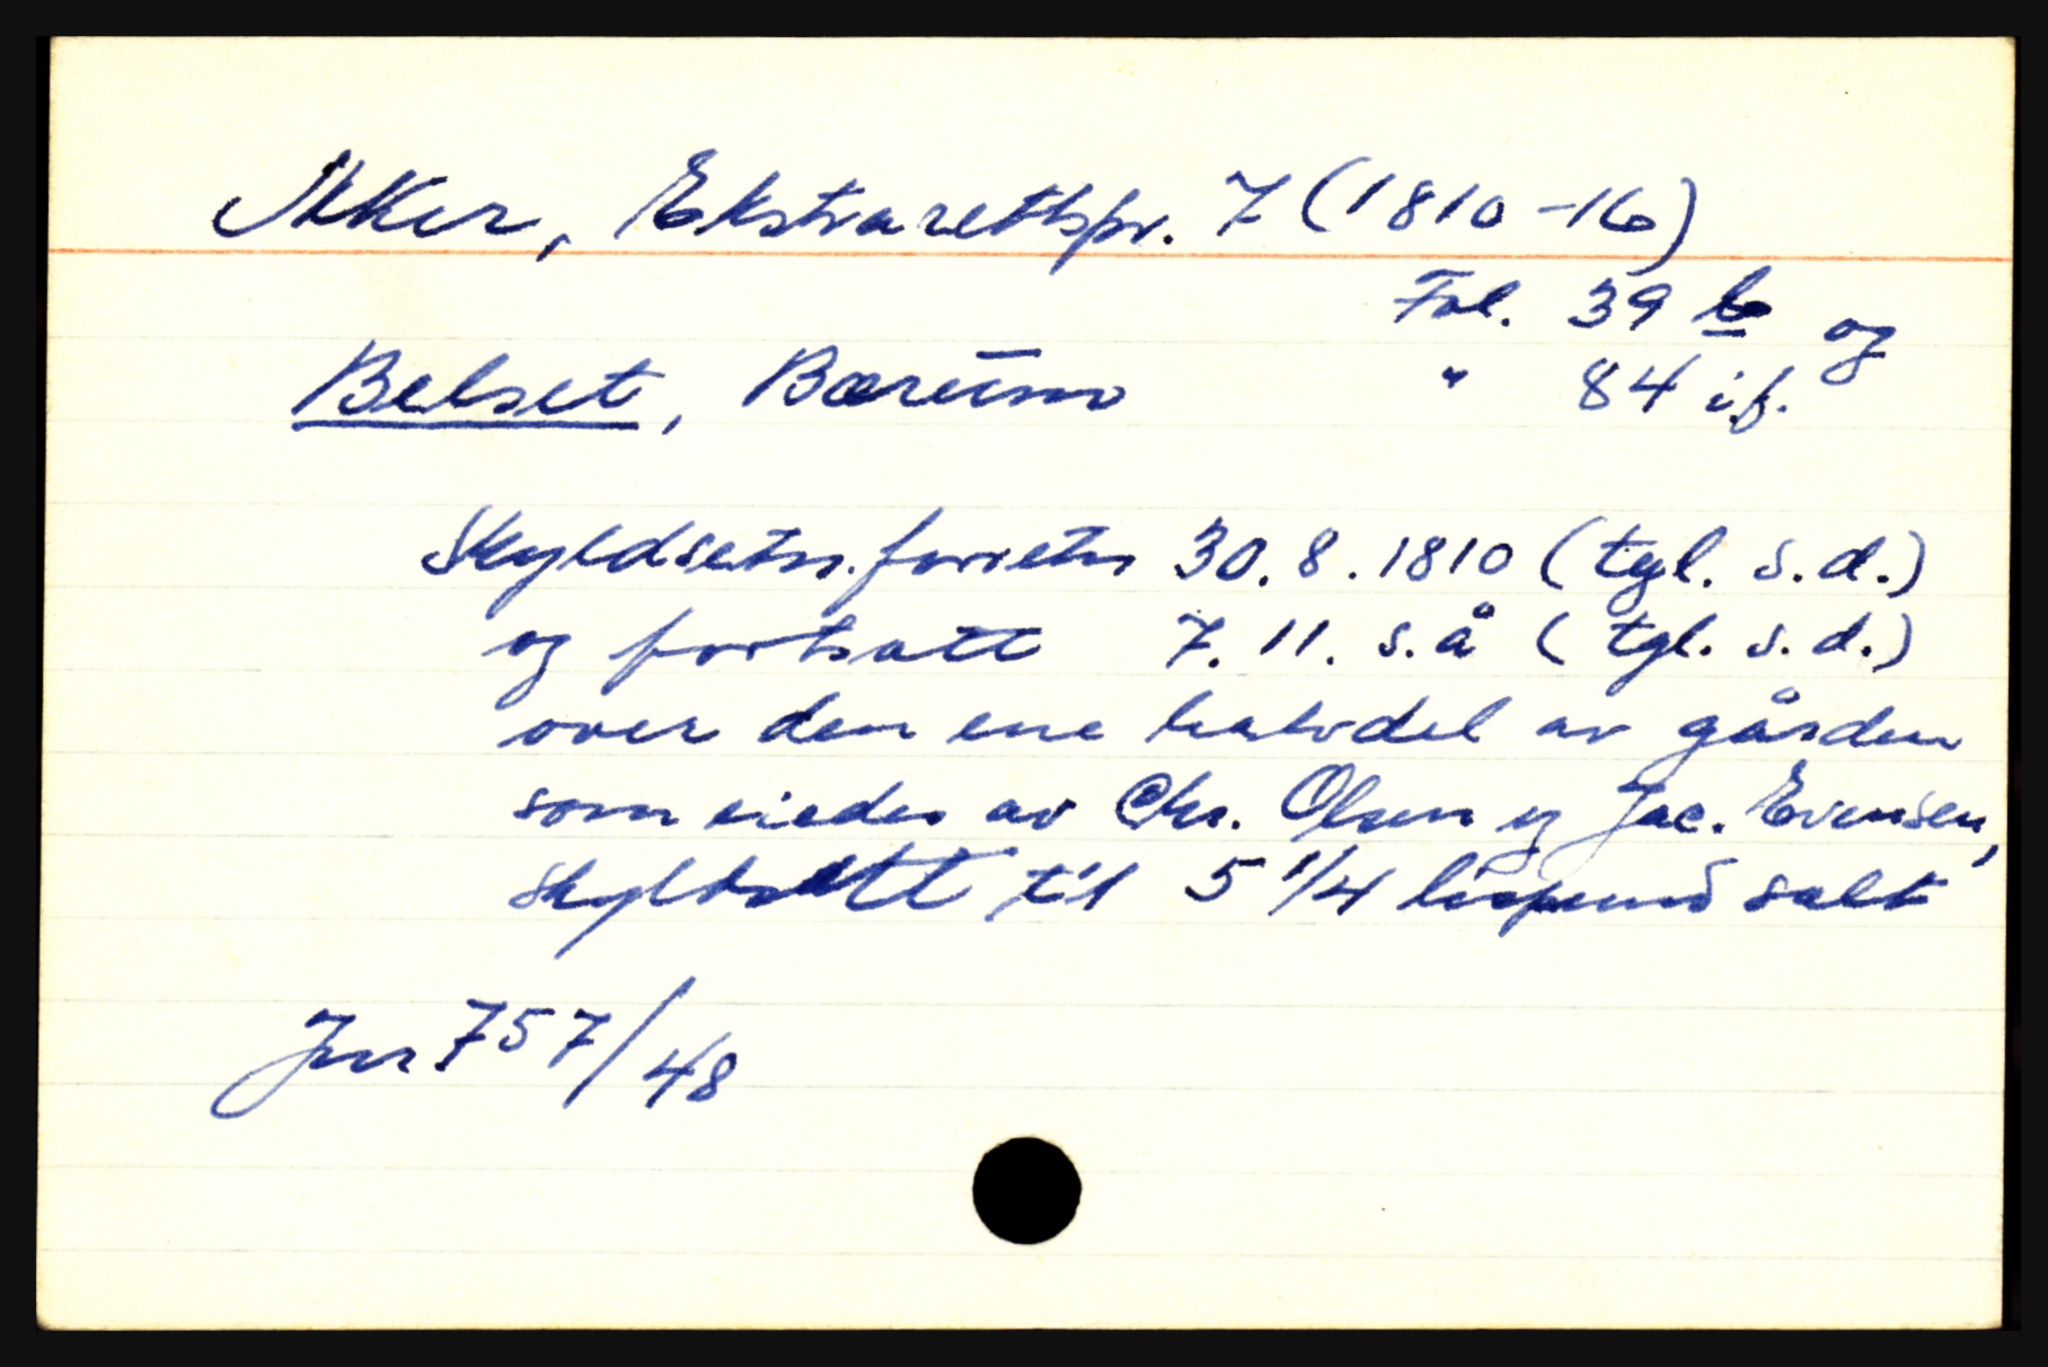 Aker, Ekstrarettspr. 7 (1810-16)
Fol. 39 b og
Belset, Bærum " 84 i.f.
Skyldsetn.forretn 30.8.1810 (tgl. s.d.)
og fortsatt 7.11. s.å (tgl. s.d.)
over den ene halvdel av gården
som eiedes av Chr. Olsen og Jac. Evensen,
skyldsatt til 5 1/4 lispund salt
Jnr. 757/48